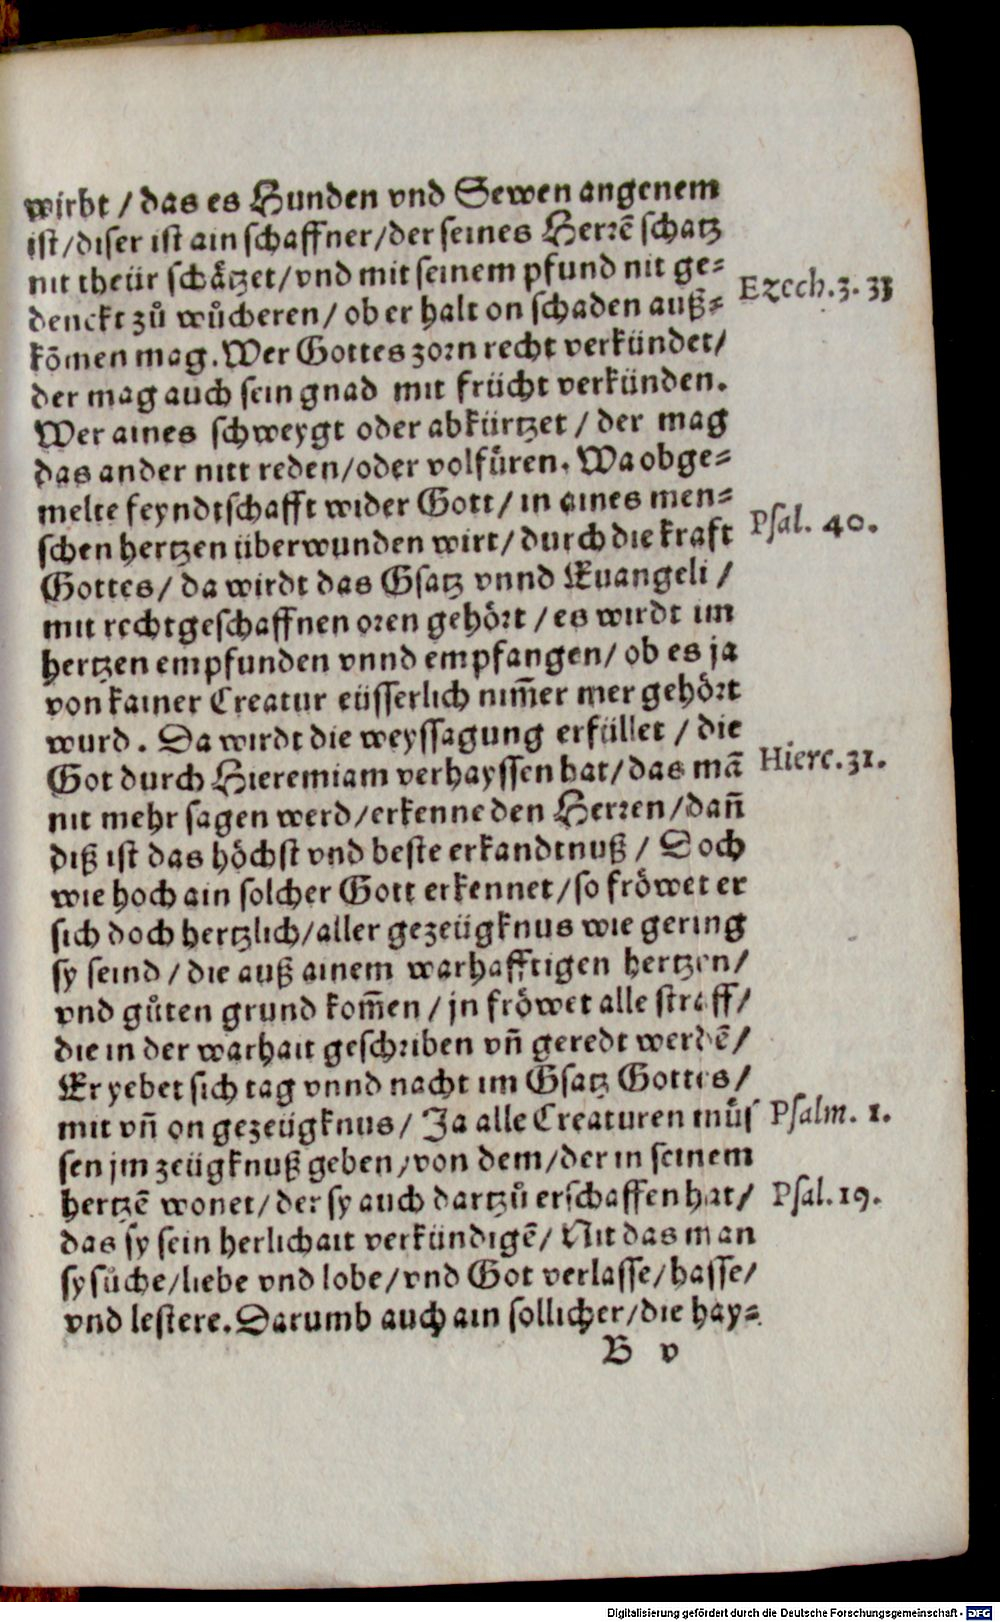 wirbt / das es Hunden vnd Sewen angenem
ist/diser ist ain schaffner/der seines Herrẽ schatz
nit theür schåtzet/vnd mit seinem pfund nit ge=
Ezech. 3. 33
denckt zů wůcheren/ ob er halt on schaden auß=
kõmen mag. Wer Gottes zorn recht verkündet/
der mag auch sein gnad mit frücht verkünden.
Wer aines schweygt oder abkürtzet / der mag
das ander nitt reden/oder volfüren. Wa obge=
melte feyndtschafft wider Gott/ in aines men=
Psal. 40.
schen hertzen überwunden wirt/ durch die kraft
Gottes/ da wirdt das Gsatz vnnd Euangeli /
mit rechtgeschaffnen oren gehört / es wirdt im
hertzen empfunden vnnd empfangen/ ob es ja
von kainer Creatur eüsserlich nim̃er mer gehört
wurd. Da wirdt die weyssagung erfüllet / die
Hiere. 31.
Got durch Hieremiam verhayssen hat/ das mã
nit mehr sagen werd/erkenne den Herren/dañ
diß ist das höchst vnd beste erkandtnuß / Doch
wie hoch ain solcher Gott erkennet/so fröwet er
sich doch hertzlich/aller gezeügknus wie gering
sy seind / die auß ainem warhafftigen hertzen/
vnd gůten grund kom̃en / jn fröwet alle straff/
die in der warhait geschriben vñ geredt werdẽ/
Er yebet sich tag vnnd nacht im Gsatz Gottes/
Psalm. 1.
mit vñ on gezeügknus/ Ja alle Creaturen müs
sen jm zeügknuß geben/von dem/der in seinem
Psal. 19.
hertzẽ wonet/der sy auch dartzů erschaffen hat/
das sy sein herlichait verkündigẽ/ Nit das man
sy sůche/liebe vnd lobe/vnd Got verlasse/hasse/
vnd lestere. Darumb auch ain sollicher/die hay=
B v
Digitalisierung gefördert durch die Deutsche Forschungsgemeinschaft - DFG